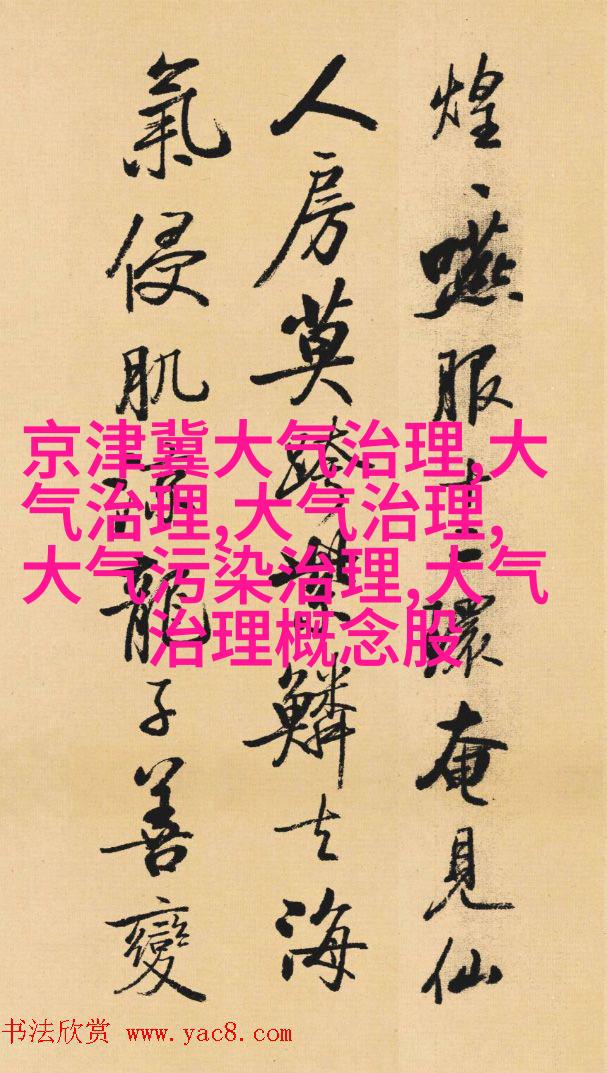 煌、嚥服環奄見仙
人房莫鱗去海
氣侵肌龍子善變
京津冀大气治理,大
气治理,大气治理,
大气污染治理,大气
治理概念股
书法欣赏 www.yac8.com